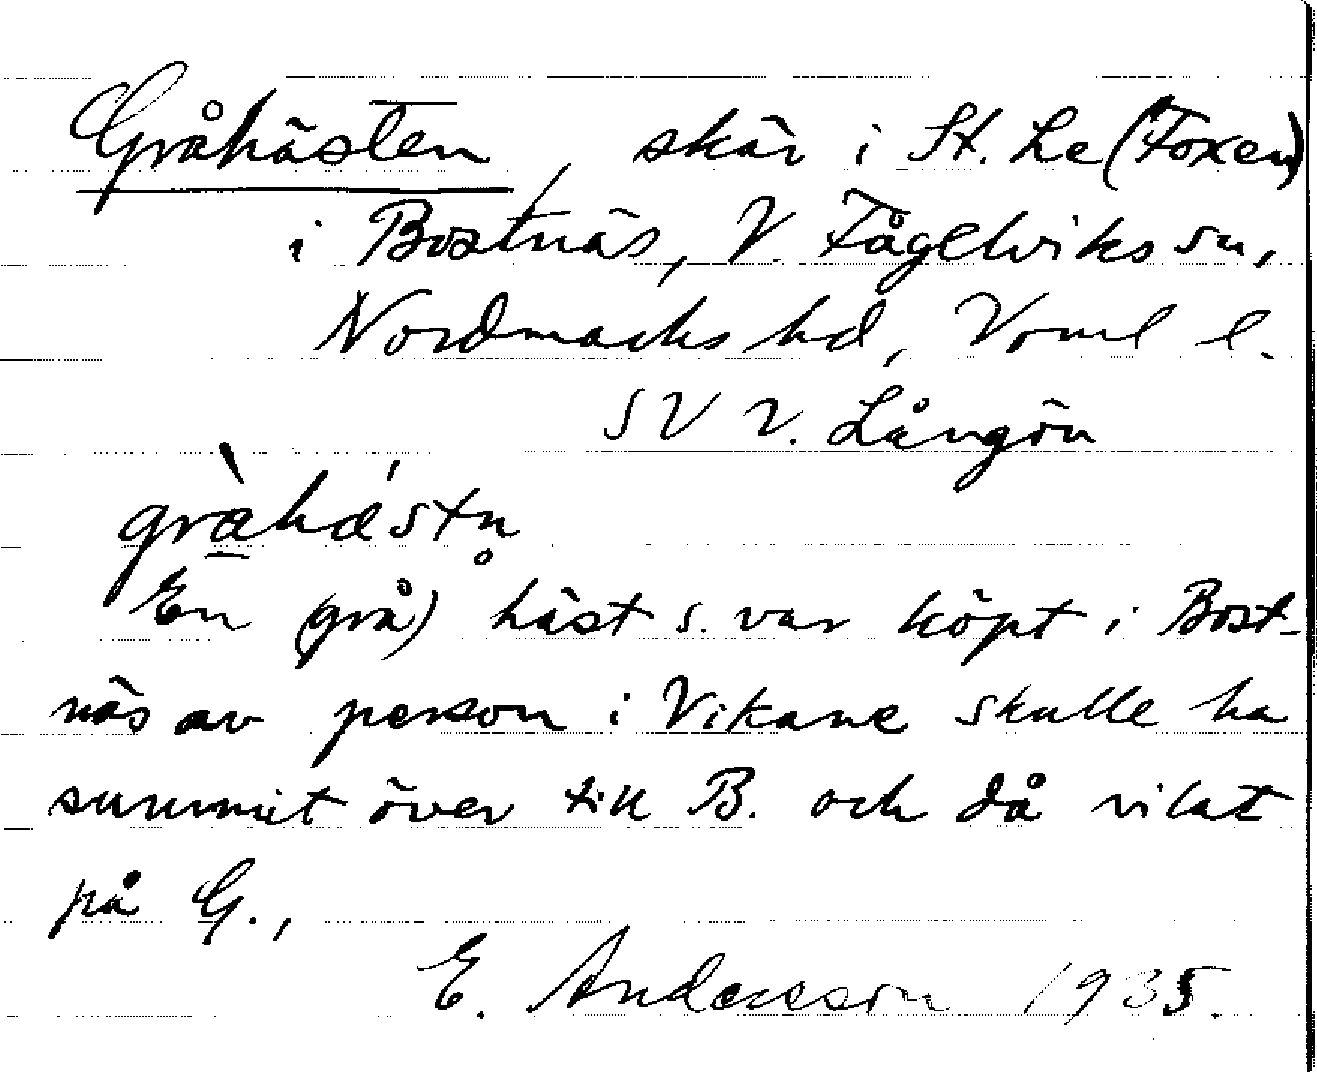 Gråhästen, skär i St. Le (Foxen)
i Bostnäs, V. Fågelviks sn,
Nordmarks hd, Vrml l.
SV v. Långön
gràhästn̥
En (grå) häst s. var köpt i Bost-
näs av person i Vikane skulle ha
summit över till B. och då vilat
på G.,
E. Andersson 1935.